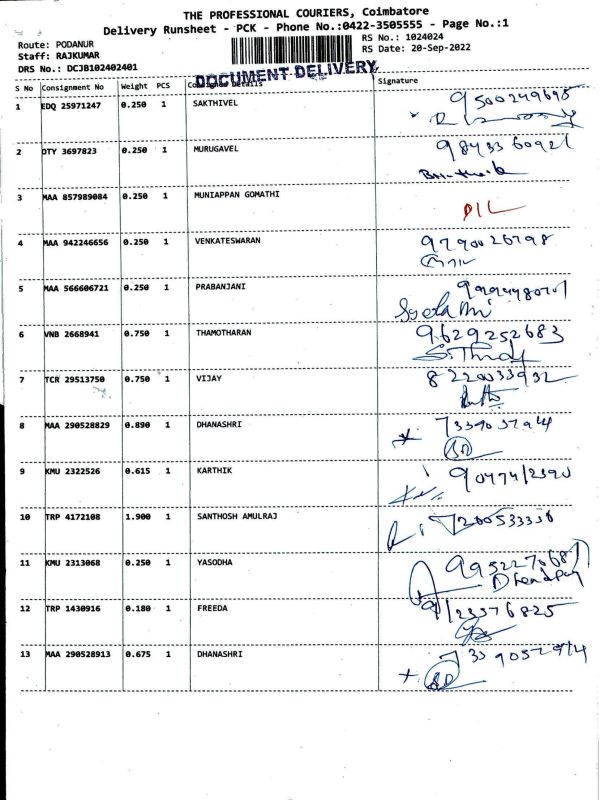 THE PROFESSIONAL COURIERS, Coimbatore
Delivery Runsheet - PCK - Phone No.:0422-3505555 - Page No.:1
Route: PODANUR
RS No.: 1024024
Staff: RAJKUMAR
RS Date: 20-Sep-2022
DRS No.: DCJB102402401
DOCUMENT DELIVERY
S No Consignment No Weight PCS Details Signature
1 EDQ 25971247 0.250 1 SAKTHIVEL 9500249695
2 DTY 3697823 0.250 1 MURUGAVEL 9843360921
3 MAA 857989084 0.250 1 MUNIAPPAN GOMATHI D/L
4 MAA 942246656 0.250 1 VENKATESWARAN 9790026798
5 MAA 566606721 0.250 1 PRABANJANI
6 VNB 2668941 0.750 1 THAMOTHARAN 9629252683
7 TCR 29513750 0.750 1 VIJAY 8220033932
8 MAA 290528829 0.890 1 DHANASHRI
9 KMU 2322526 0.615 1 KARTHIK
10 TRP 4172108 1.900 1 SANTHOSH AMULRAJ
11 KMU 2313068 0.250 1 YASODHA
12 TRP 1430916 0.180 1 FREEDA 9123376825
13 MAA 290528913 0.675 1 DHANASHRI